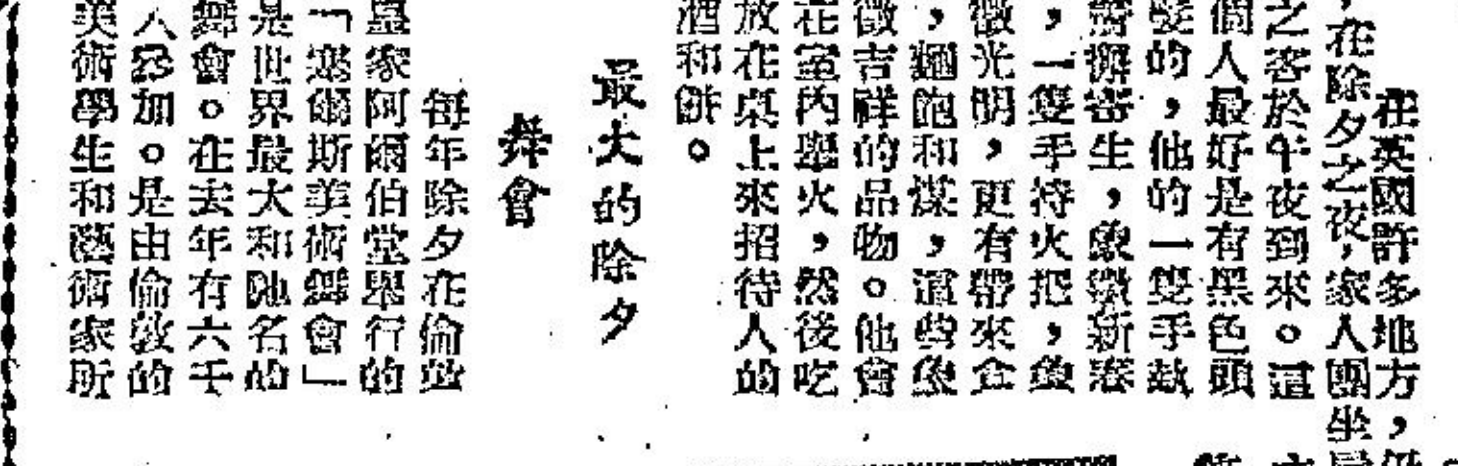 在英國許多地方，
，在除夕之夜，家人團坐
之客於午夜到來。這
個人最好是有黑色頭
髮的，他的一隻手鼓
寄生，象徵新春
，一雙手持火把，象
徵光明，更有帶來金
，麵飽和煤，這些象
徵吉祥的品物。他會
在室內舉火，然後吃
放在桌上來招待人的
酒和餅。
最大的除夕
舞會
每年除夕在倫敦
皇家阿爾伯堂舉行的
「塞爾斯美術舞會」
是世界最大和馳名的
舞會。在去年有六千
人參加。是由倫敦的
美術學生和藝術家所